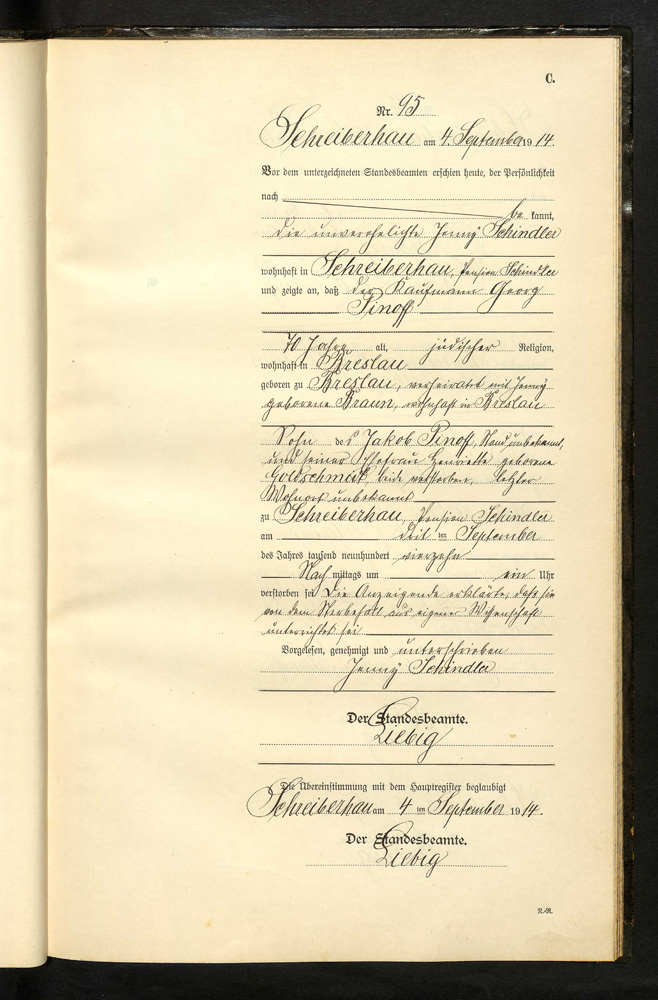 C.
Nr. 95
Schreiberhau am 4. September 1914.
Vor dem unterzeichneten Standesbeamten erschien heute, der Persönlichkeit
nach
be kannt,
die unverehelichte Jenny Schindler
wohnhaft in Schreiberhau, Pension Schindler
und zeigte an, daß der Kaufmann Georg
Pinoff
70 Jahre alt, jüdischer Religion,
wohnhaft in Breslau
geboren zu Breslau, verheiratet mit Jenny
geborene Braun, wohnhaft in Breslau
Sohn des Jakob Pinoff, Stand unbekannt,
und seiner Ehefrau Henriette geborene
Goldschmidt, beide verstorben, letzter
Wohnort unbekannt
zu Schreiberhau, Pension Schindler
am drei ten September
des Jahres tausend neunhundert vierzehn
Nach mittags um ein Uhr
verstorben sei. Die Anzeigende erklärte, daß sie
von dem Sterbefall aus eigener Wissenschaft
unterrichtet sei
Vorgelesen, genehmigt und unterschrieben
Jenny Schindler
Der Standesbeamte.
Liebig
Die Übereinstimmung mit dem Hauptregister beglaubigt
Schreiberhau am 4 ten September 1914.
Der Standesbeamte.
Liebig
R.-R.